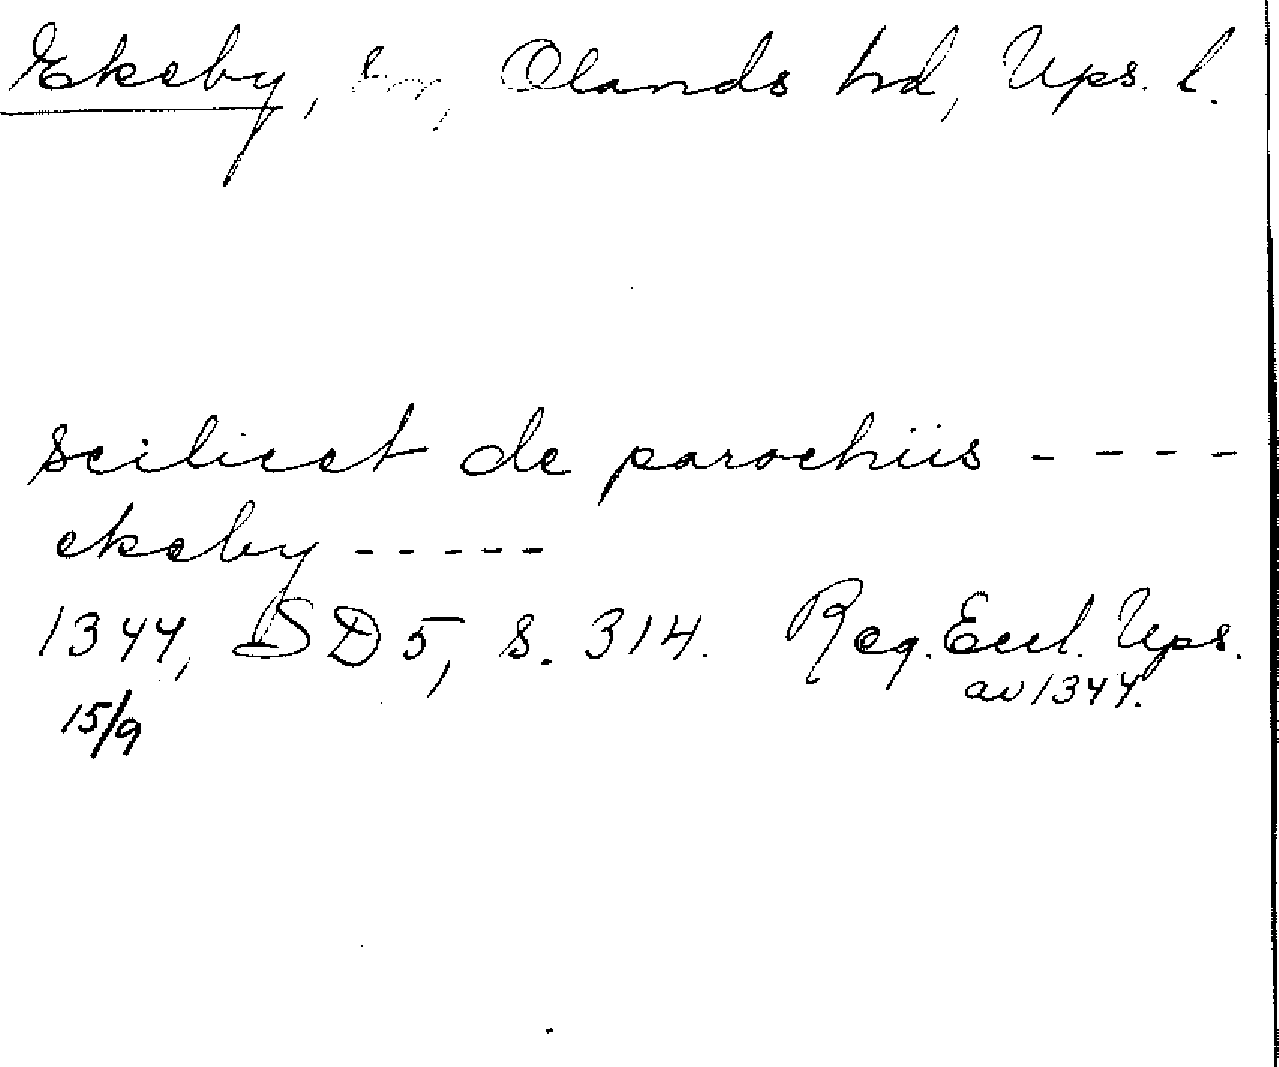 Ekeby, sn, Olands hd, Ups. l.
scilicet de parochiis - - - - -
ekeby - - - - -
1344, SD 5, s. 314. Reg. Eccl. Ups.
av 1344.
15/9